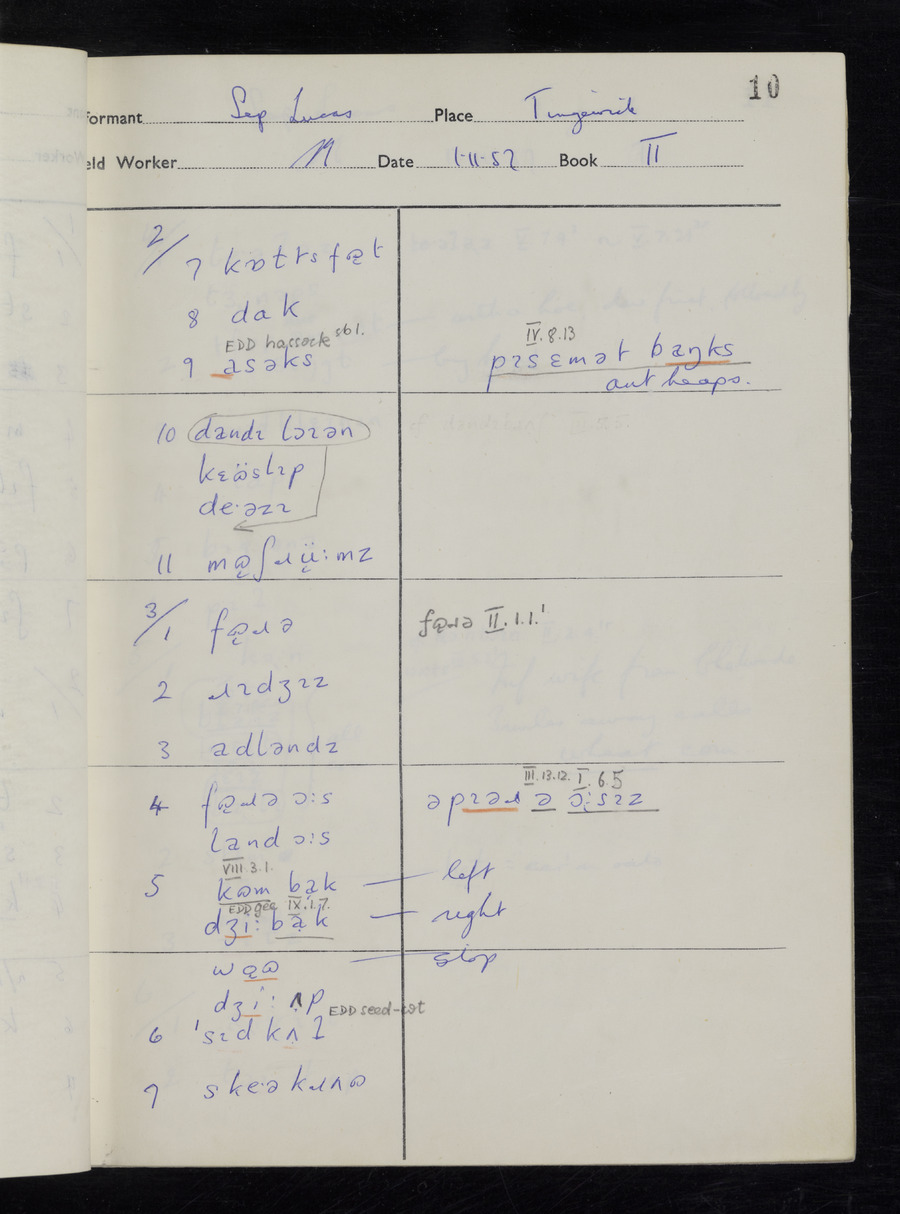 10
formant Sep Lucas Place Tingewick
eld Worker Date 1·11·52 Book II
2/
7 kɒtɪs fʊt
8 dak
EDD hassock sbl.
9 asəks
IV.8.13
pɪsɛmət baŋks
ant heaps.
10 dandɪ lɔɪən
kɛöslɪp
de·əzɪ
11 mʊʃɹü:mz
3/
1 fʊɹə
fʊɹə II.1.1.¹
2 ɹɪdʒɪz
3 adləndz
4 fʊɹə ɔ:s
III.13.12. I.6 5
əpɪəɹ ə ɔ:sɪz
land ɔ:s
VIII.3.1.
5 kʊm bak — left
EDD gee IX.1.7.
dʒi: bak — right
stop
dʒi: ʌp
EDD seed-cot
6 'sɪd kʌl
7 ske·ə kɹʌʊ